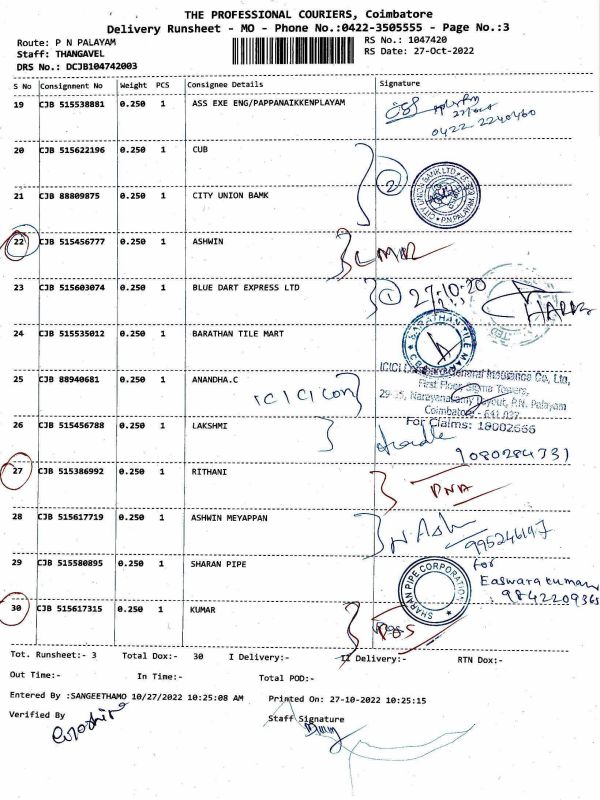 THE PROFESSIONAL COURIERS, Coimbatore
Delivery Runsheet - MO - Phone No.:0422-3505555 - Page No.:3
Route: P N PALAYAM
RS No.: 1047420
Staff: THANGAVEL
RS Date: 27-Oct-2022
DRS No.: DCJB104742003
S No Consignment No Weight PCS Consignee Details Signature
19 CJB 515538881 0.250 1 ASS EXE ENG/PAPPANAIKKENPLAYAM
0422 2240460
20 CJB 515622196 0.250 1 CUB
2
CITY UNION BANK LTD P.N PALAYAM
21 CJB 88809875 0.250 1 CITY UNION BAMK
22 CJB 515456777 0.250 1 ASHWIN
23 CJB 515603074 0.250 1 BLUE DART EXPRESS LTD
1 27-10-20
24 CJB 515535012 0.250 1 BARATHAN TILE MART
BARATHAN TILE MART
25 CJB 88940681 0.250 1 ANANDHA.C
ICICI Lombard General Insurance Co, Ltd,
First Floor, Sigma Towers,
29-35, Narayanasamy Layout, P.N. Palayam
Coimbatore - 641 037
For Claims: 18002666
26 CJB 515456788 0.250 1 LAKSHMI
9080284331
27 CJB 515386992 0.250 1 RITHANI
DNA
28 CJB 515617719 0.250 1 ASHWIN MEYAPPAN
N. Ash
995246197
29 CJB 515580895 0.250 1 SHARAN PIPE
SHARAN PIPE CORPORATION
for
Easwarakumar
9842209365
30 CJB 515617315 0.250 1 KUMAR
Tot. Runsheet:- 3 Total Dox:- 30 I Delivery:- II Delivery:- RTN Dox:-
Out Time:- In Time:- Total POD:-
Entered By :SANGEETHAMO 10/27/2022 10:25:08 AM Printed On: 27-10-2022 10:25:15
Verified By Staff Signature